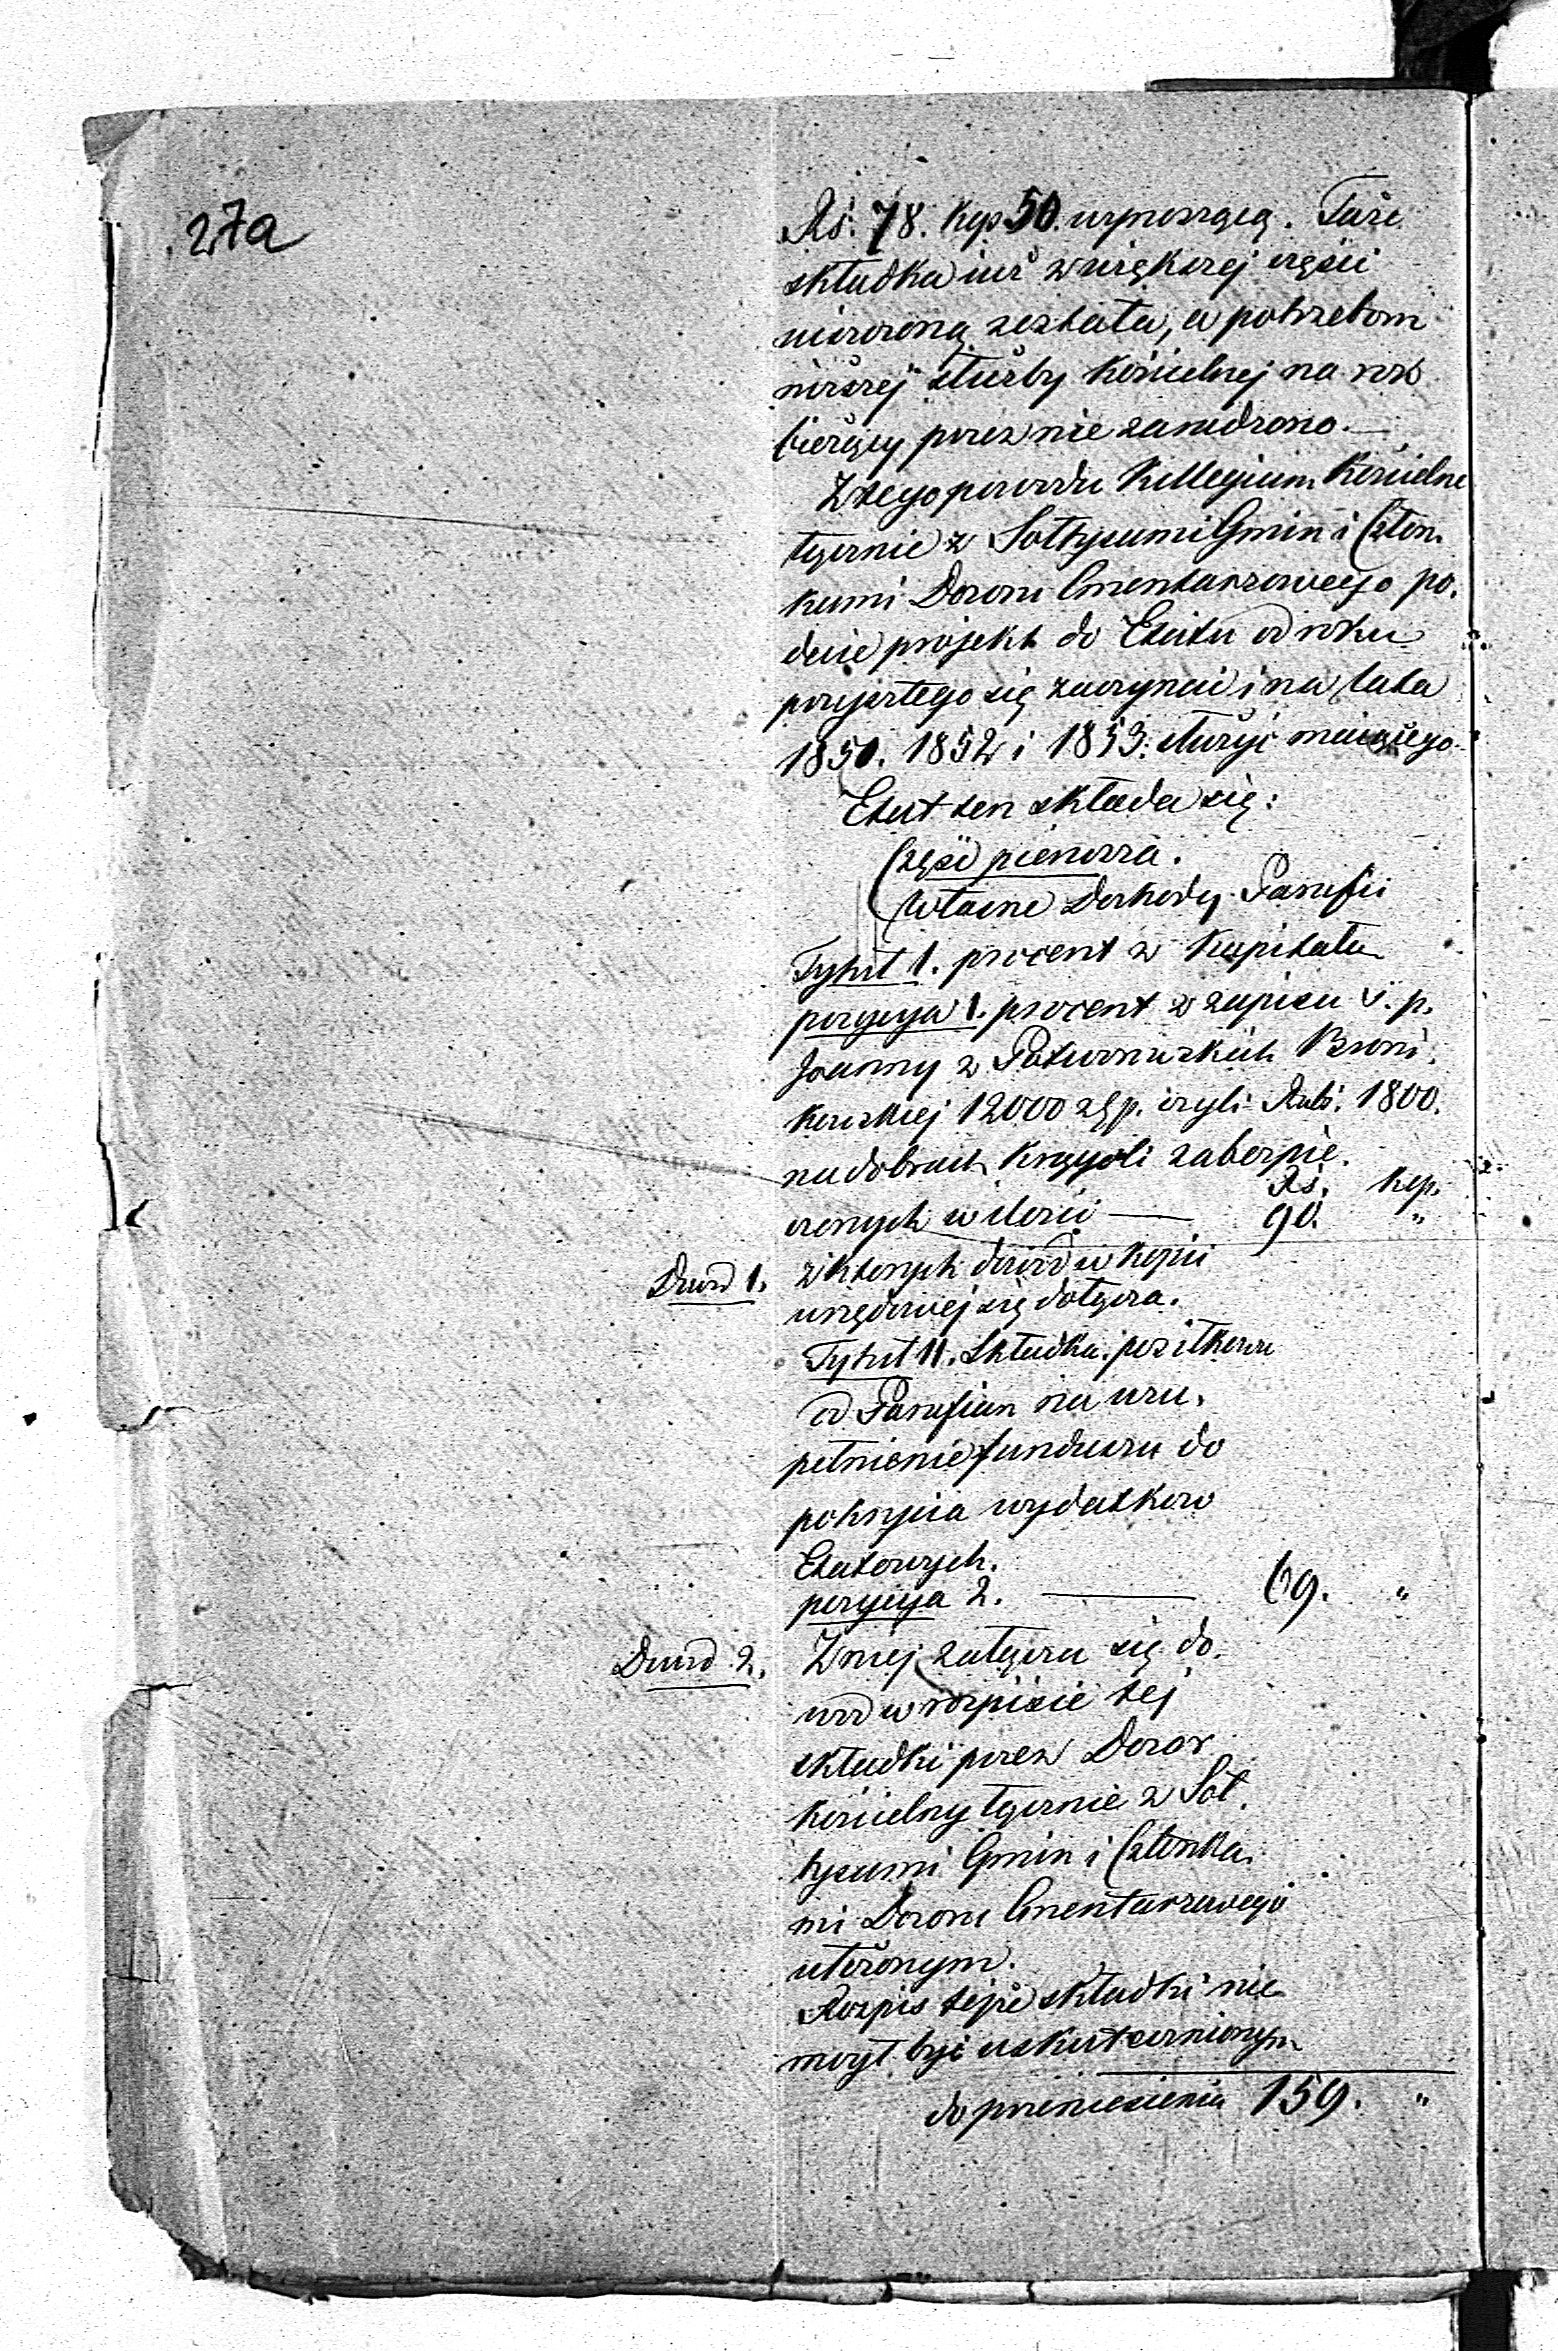 27a
Rś: 78. kop 50. wynoszącą. Taże
składka iuż w większej części
uiszczoną została, a potrzebom
niższej służby kościelnej na rok
bieżący przez nie zaradzono. —
Z tego powodu Kollegium Kościelne
łącznie z Sołtysami Gmin i Człon-
kami Dozoru Cmentarzowego po-
daie projekt do Etatu od roku
przyszłego się zaczynaći i na lata
1851. 1852 i 1853: służyć maiącego.
Etat ten składa się:
Część pierwsza.
Własne Dochody Parafii
Tytuł I. procent z Kapitału
pozycya 1. procent z zapisu ś. p.
Joanny z Broni-
kowskiej 12000 złp. czyli Rubs. 1800.
na dobrach Krągoli zabezpie-
Rś. kop.
czonych w ilości — 90. "
Dowód 1. z których dowód w kopii
urzędowej się dołącza.
Tytuł II. Składka posiłkowa
od Parafian na uzu-
pełnienie funduszu do
pokrycia wydatków
Etatowych.
pozycya 2. — 69. "
Dowód 2. Z niej załącza się do-
wód w rozpisie tej
składki przez Dozór
kościelny łącznie z Soł-
tysami Gmin i Członka-
mi Dozoru Cmentarzowego
ułożonym.
Rozpis tejże składki nie
mógł być uskutecznionym
do przeniesienia 159. "